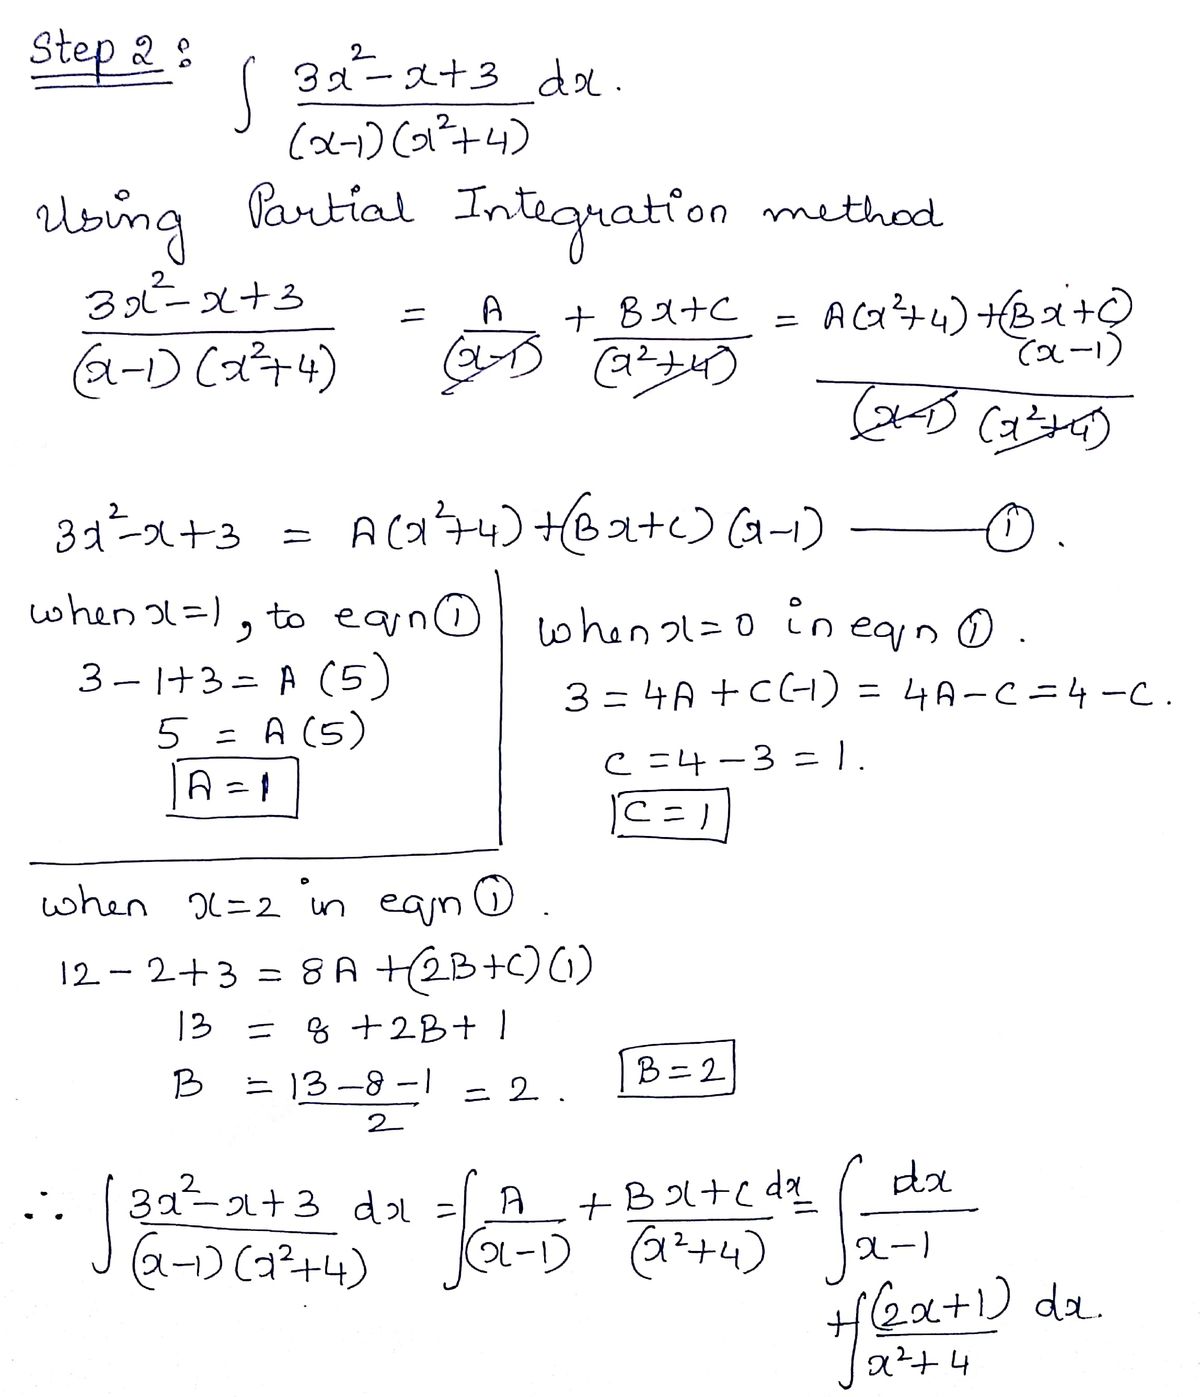 Step 2 :
∫ 3x²-x+3 / (x-1)(x²+4) dx.
Using Partial Integration method
3x²-x+3 / (x-1)(x²+4) = A / (x-1) + Bx+C / (x²+4) = A(x²+4)+(Bx+C)(x-1) / (x-1)(x²+4)
3x²-x+3 = A(x²+4)+(Bx+C)(x-1) —— ①.
when x=1, to eqn ①
3-1+3 = A(5)
5 = A(5)
A=1
when x=0 in eqn ①.
3 = 4A+C(-1) = 4A-C = 4-C.
C = 4-3 = 1.
C = 1
when x=2 in eqn ①.
12-2+3 = 8A+(2B+C)(1)
13 = 8+2B+1
B = 13-8-1 / 2 = 2.
B=2
∴ ∫ 3x²-x+3 / (x-1)(x²+4) dx = ∫ A / (x-1) + Bx+C / (x²+4) dx = ∫ dx / x-1
+∫ (2x+1) / x²+4 dx.